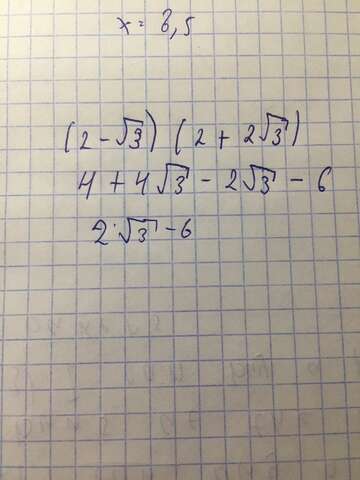 x = 8,5
(2 - √3) (2 + 2√3)
4 + 4√3 - 2√3 - 6
2·√3 - 6